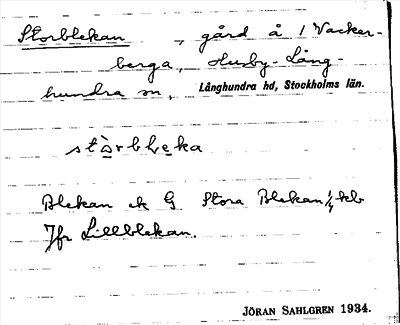 Storblekan , gård å 1 Vacker-
berga, Husby-Lång-
hundra sn, Långhundra hd, Stockholms län.
stòrbleka
Blekan ek G Stora Blekan 1/4 kb
Jfr Lillblekan.
JÖRAN SAHLGREN 1934.